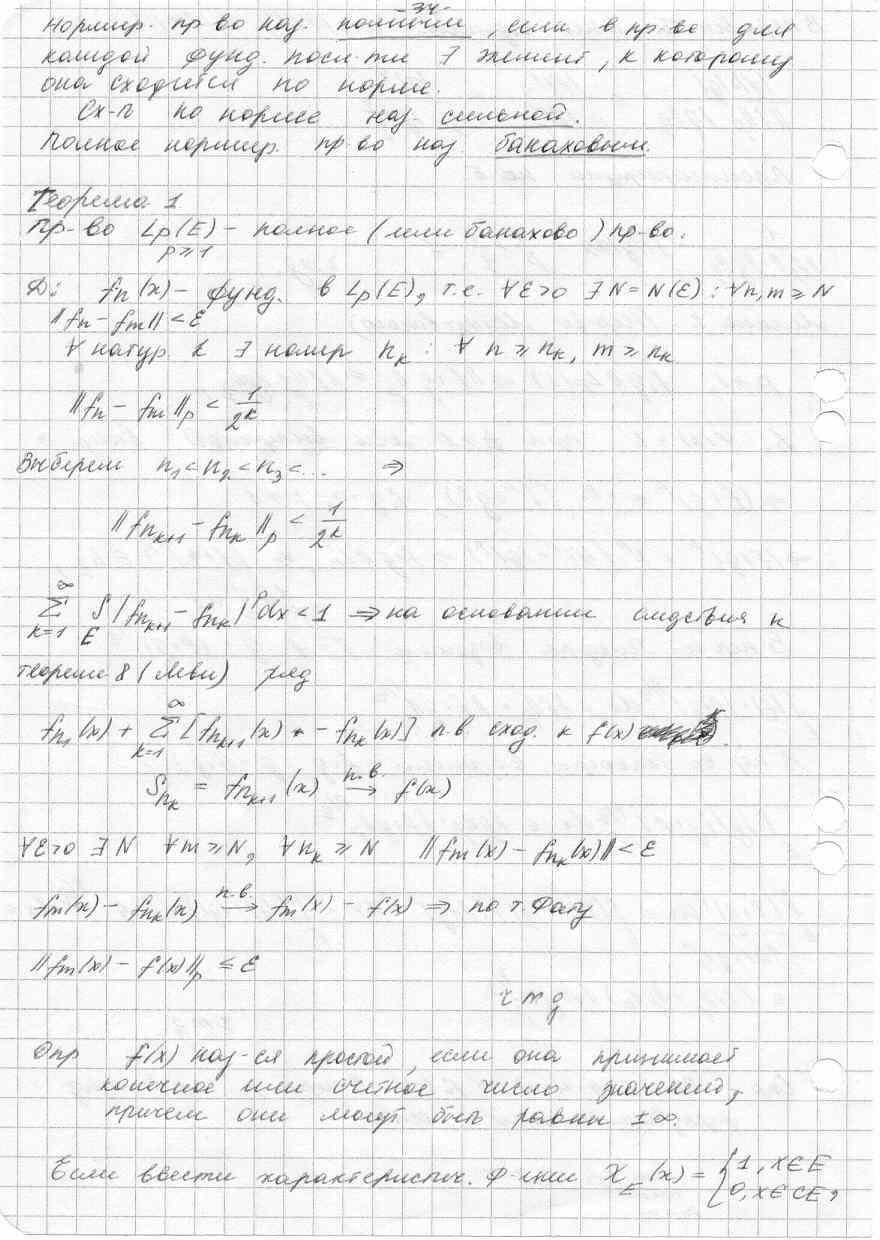 - 34 -
Нормир. пр-во наз. полным, если в пр-ве для
каждой фунд. посл-ти ∃ элемент, к которому
она сходится по норме.
Сх-ть по норме наз. сильной.
Полное нормир. пр-во наз. банаховым.
Теорема 1
Пр-во Lp(E) - полное (или банахово) пр-во.
p ⩾ 1
Д: fn(x) - фунд. в Lp(E), т.е. ∀ε>0 ∃N=N(ε): ∀n,m ⩾ N
||fn - fm|| < ε
∀ натур. k ∃ номер n_k : ∀ n ⩾ n_k, m ⩾ n_k
||fn - fm||_p < 1/2^k
Выберем n_1 < n_2 < n_3 < ... ⇒
||f_{n_{k+1}} - f_{n_k}||_p < 1/2^k
∑_{k=1}^∞ ∫_E |f_{n_{k+1}} - f_{n_k}|^p dx < 1 ⇒ на основании следствия к
теореме 8 (Леви) ряд
f_{n_1}(x) + ∑_{k=1}^∞ [f_{n_{k+1}}(x) - f_{n_k}(x)] п.в. сход. к f(x)
S_{n_k} = f_{n_{k+1}}(x) →^{п.в.} f(x)
∀ε>0 ∃N ∀m ⩾ N, ∀n_k ⩾ N ||f_m(x) - f_{n_k}(x)|| < ε
f_m(x) - f_{n_k}(x) →^{п.в.} f_m(x) - f(x) ⇒ по т. Фату
||f_m(x) - f(x)||_p ≤ ε
чтд
Опр f(x) наз-ся простой, если она принимает
конечное или счетное число значений,
причем они могут быть равны ±∞.
Если ввести характеристич. ф-цию X_E(x) = { 1, x∈E
0, x∈CE,